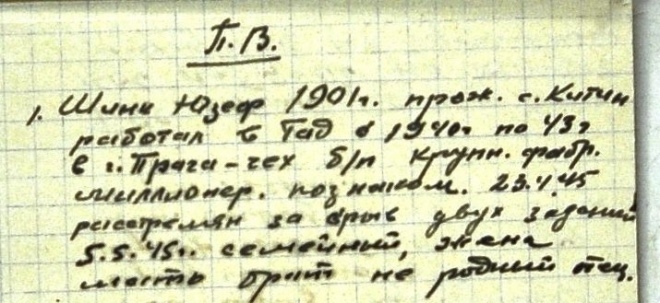 П.В.
1. Шина Юзеф 1901г. прож. с. Китин
работал в Гад с 1940г по 43г
в г. Прага - чех б/п крупн. фабр.
миллионер. познаком. 23.1.45
расстрелян за срыв двух заданий
5.5.45г. семейный, жена
мать брат не родный отец.